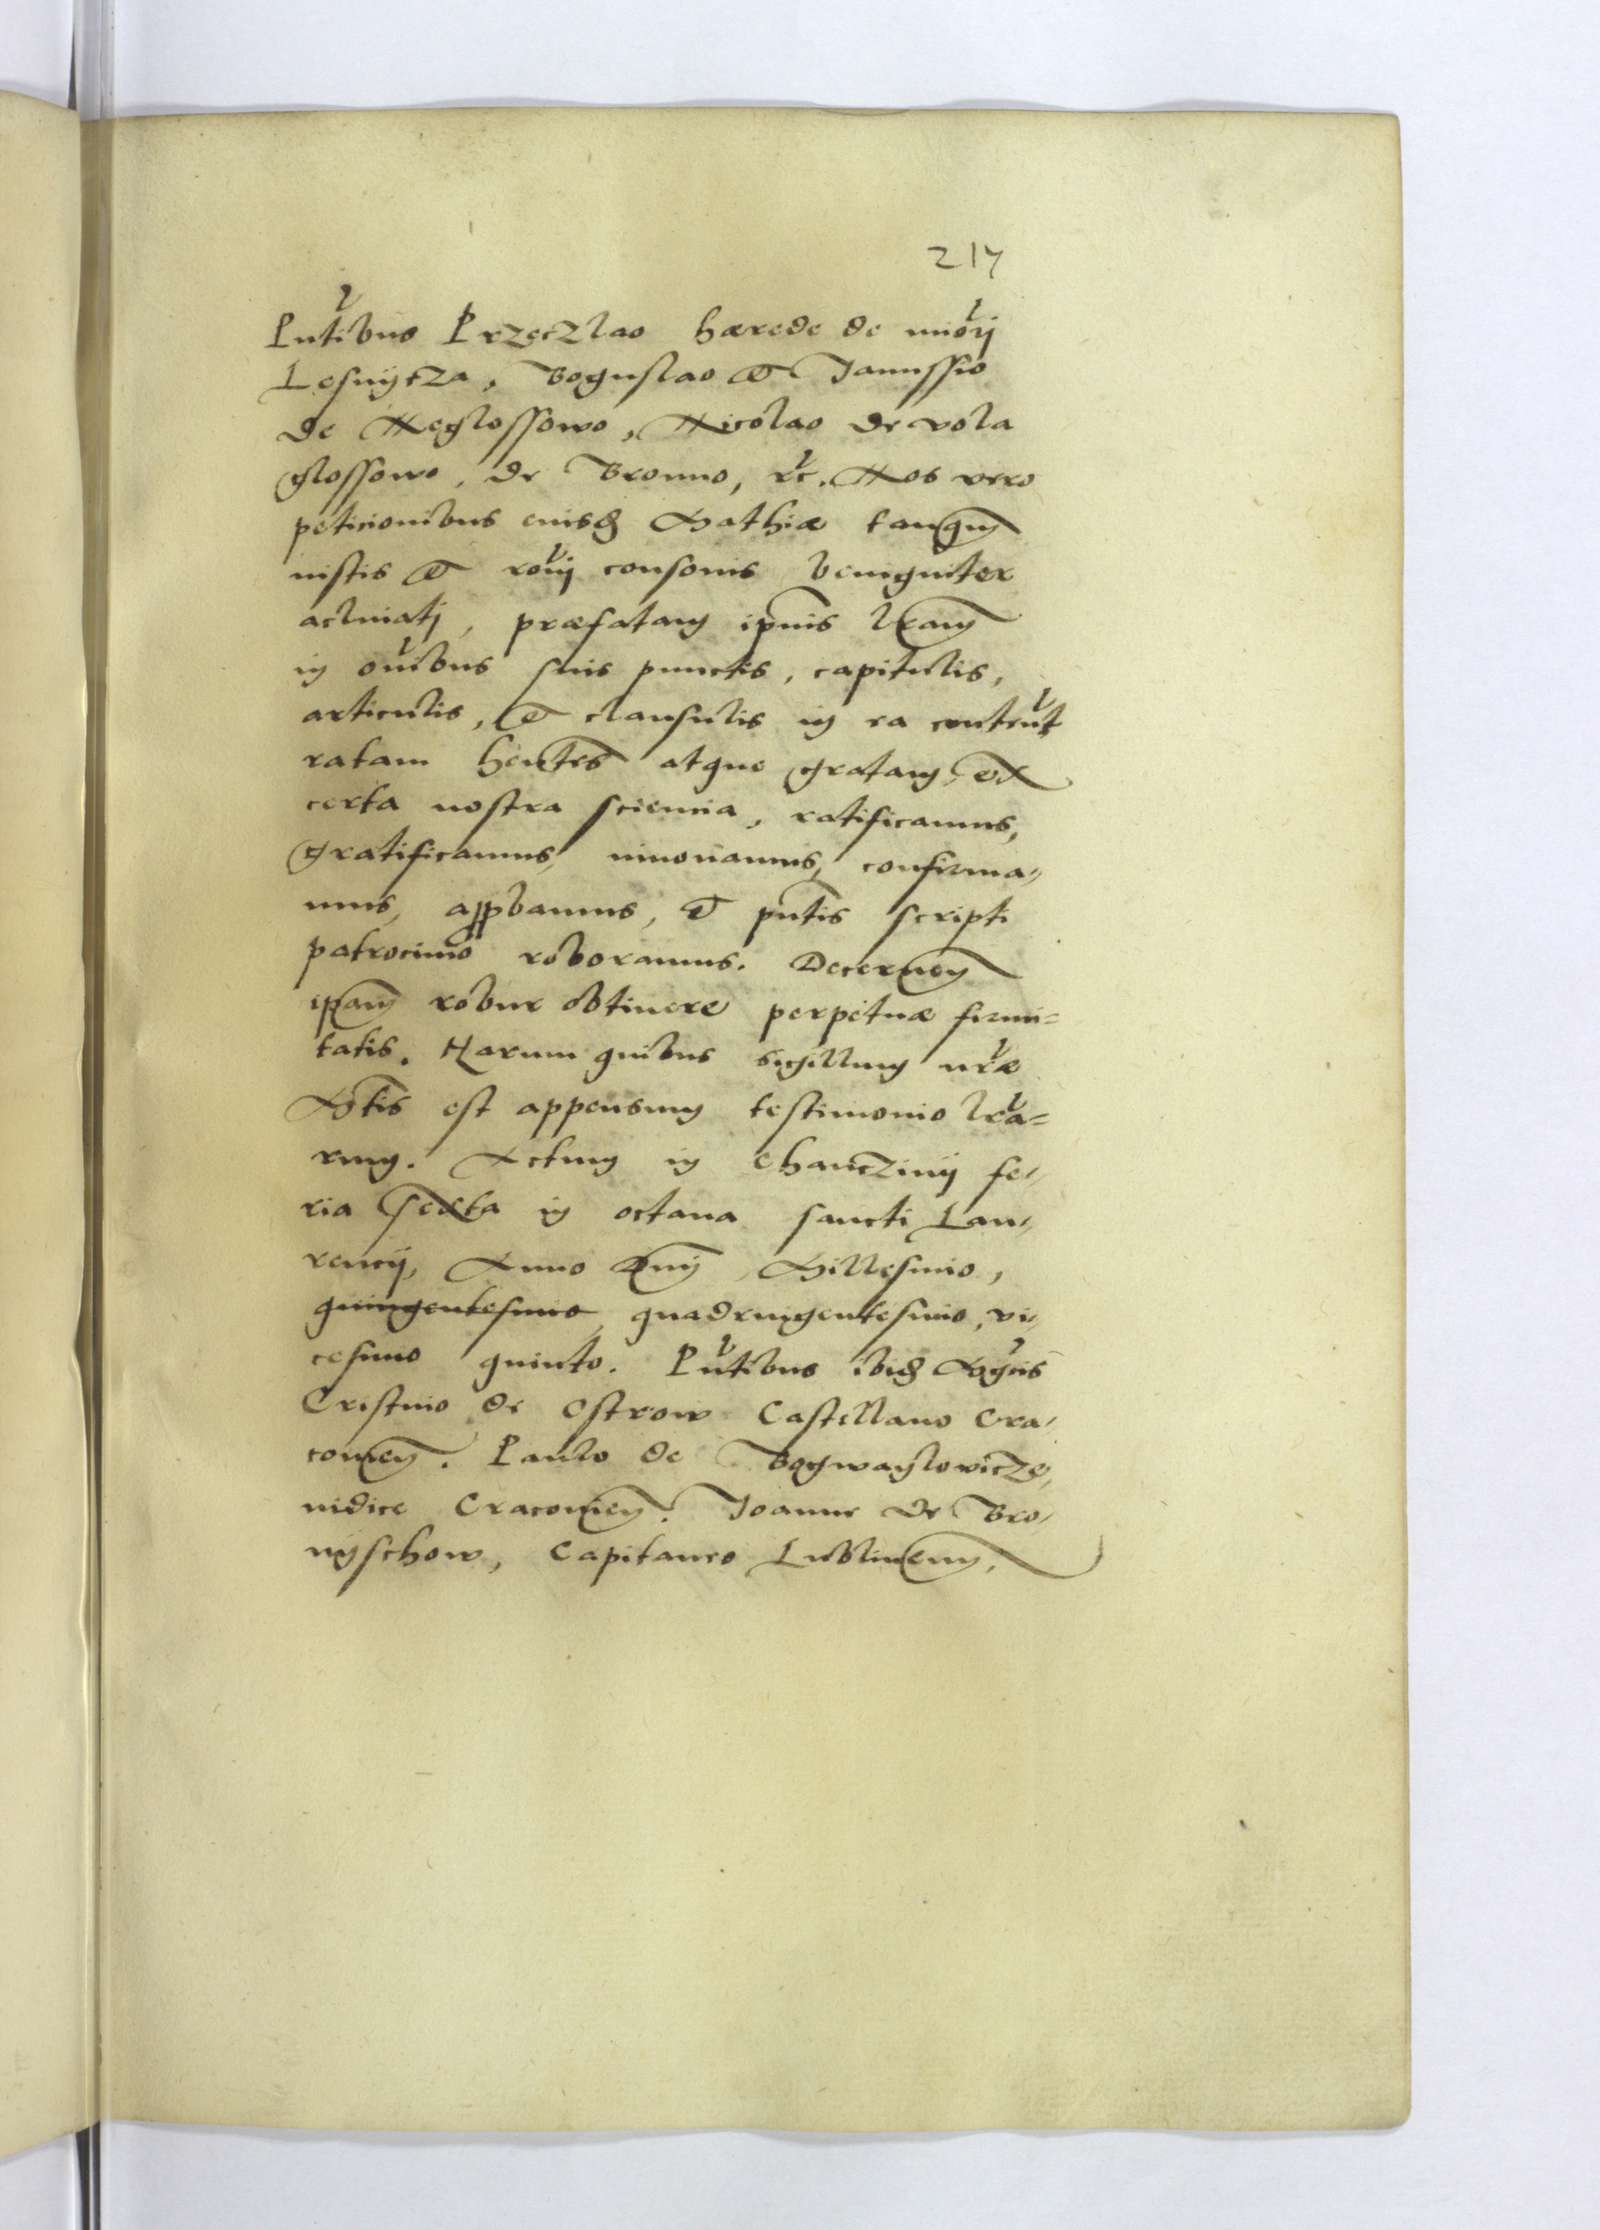 217
Pntibus Przeczlao hærede de miori
Lesnÿcza, Boguslao et Janussio
de Neglossowo, Nicolao de vola
glossowo, de Bronno, etc. Nos vero
peticionibus eiusd Mathiæ tanqm
iustis et roni consonis benigniter
aclinatj, præfatam ipsius lram
in oibus suis punctis, capitulis,
articulis, et clausulis in ea content
ratam hentes atque gratam, ex
certa nostra sciencia, ratificamus,
gratificamus, innouamus, confirma-
mus, approbamus, et pntis scripti
patrocinio roboramus. Decernen
ipam robur obtinere perpetuæ firmi-
tatis. Harum quibus sigillum nræ
Mtis est appensum testimonio lra-
rum. Actum in Chanczinij fe-
ria sexta in octaua sancti Lau-
rencij, Anno Dni Millesimo,
quingentesimo quadringentesimo, vi-
cesimo quinto. Pntibus ibid Mgcis
Cristino de Ostrow Castellano Cra-
couien. Paulo de Bogwaylowicze,
iudice Cracouien. Joanne de Bro-
nyschow, Capitaneo Lublinenn,